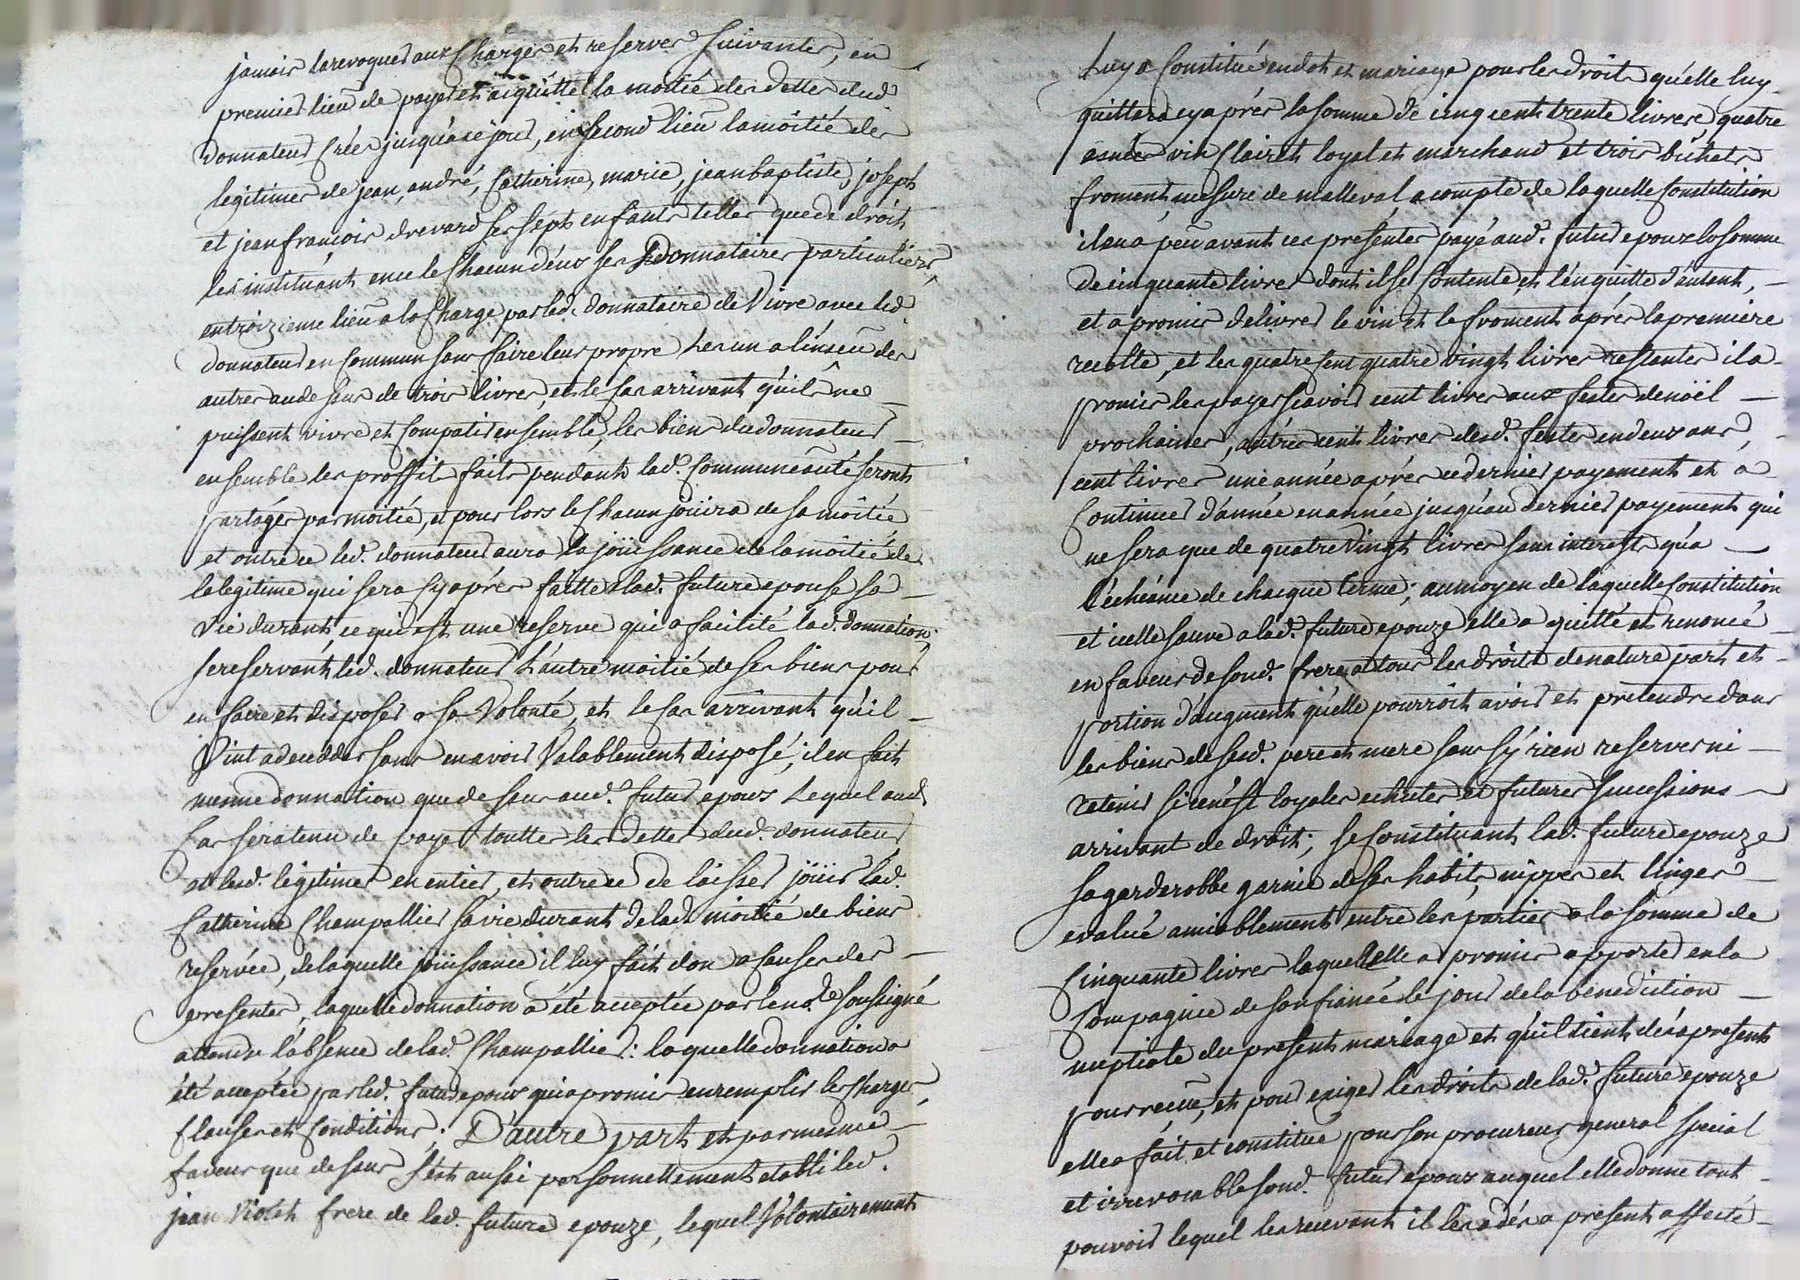 jamais la revoquer aux Charges et reserves suivantes, en
premier lieu de payer et aiquitter la moitié des dettes dud.
donnateur Crées jusqu'à ce jour, en second lieu la moitié des
legitimes de jean, andré, Catherine, marie, jean baptiste, joseph
et jean francois drevard ses sept enfants telles que de droit
les instituant en ce le Chacun d'eux ses donnataires particuliers,
en troizieme lieu a la Charge par led. donnataire de Vivre avec led.
donnateur en Commun sans faire leur propre Les un a l'inseu des
autres au dessus de trois livres, et le Cas arrivant qu'ils ne
puissent vivre et Compatir ensemble, les biens du donnateur
ensemble les proffits faits pendants lad. Communeauté seronts
partagés par moitié, et pour lors le Chacun joüira de sa moitié
et outre ce led. donnateur aura la joüissance de la moitié de
la legitime qui sera cy après faitte a lad. future epouse sa
Vie durant ce qui est une reserve qui a facilité lad. donnation,
se reservant led. donnateur L'autre moitié de ses biens pour
en faire et disposer a sa Volonté, et le Cas arrivant qu'il
Vint a decedder sans en avoir Valablement disposé, il en fait
mesme donnation que dessus aud. futur epoux Lequel aud.
Cas sera tenu de payer touttes les dettes dud. donnateur
et lesd. legitimes en entier, et outre ce de laisser joüir lad.
Catherine Champallier sa vie durant de lad. moitié de biens
reservée, de laquelle joüissance il luy fait don a Causes des
presentes, laquelle donnation a été acceptée par le no.re soussigné
attendu l'absence de lad. Champallier: laquelle donnation a
été acceptée par led. futur epoux qui a promis en remplir les Charges,
Clauses et Conditions; D'autre part et par mesme
faveur que dessus s'est aussi personnellement etabli led.
jean Violet frere de lad. future epouze, lequel Volontairement
Luy a Constitué en dot et mariage pour les droits qu'elle luy
quittera cy après la somme de cinq cent trente livres quatre
asnées vin Clair et loyal et marchand et trois bichets
froment, mesure de malleval a compte de laquelle Constitution
il en a peu avant ces presentes payé aud. futur epoux la somme
de cinquante livres dont il se Contente et l'en quitte d'autant,
et a promis delivrer le vin et le froment après la premiere
recolte, et les quatre cent quatre vingt livres restantes il a
promis les payer scavoir cent livres aux festes de noël
prochaines, autres cent livres desd. festes en deux ans,
cent livres une année après ce dernier payement et a
Continuer d'année en année jusqu'au dernier payement qui
ne sera que de quatre Vingt livres sans interest qu'a
l'échéance de chaque terme; au moyen de laquelle Constitution
et icelle sauve a lad. future epouze elle a quitté et renoncé
en faveur de sond. frere a tous les droits de nature part et
portion d'augment qu'elle pourroit avoir et pretendre dans
les biens de sesd. pere et mere sans s'y rien reserver ni
retenir si ce n'est loyales echutes et futures successions
arrivant de droit; se Constituant lad. future epouze
sa garderobbe garnie de ses habits, nippes et linges
evalué amiablement entre les parties a la somme de
Cinquante livres laquelle elle a promis apporter en la
Compagnie de son fiancé le jour de la benediction
nuptiale du present mariage et qu'il tient dès a present
pour reçue, et pour exiger les droits de lad. future epouze
elle a fait et constitué pour son procureur general special
et irrevocable sond. futur epoux auquel elle donne tout
pouvoir lequel les recevant il les a dès a present affecté